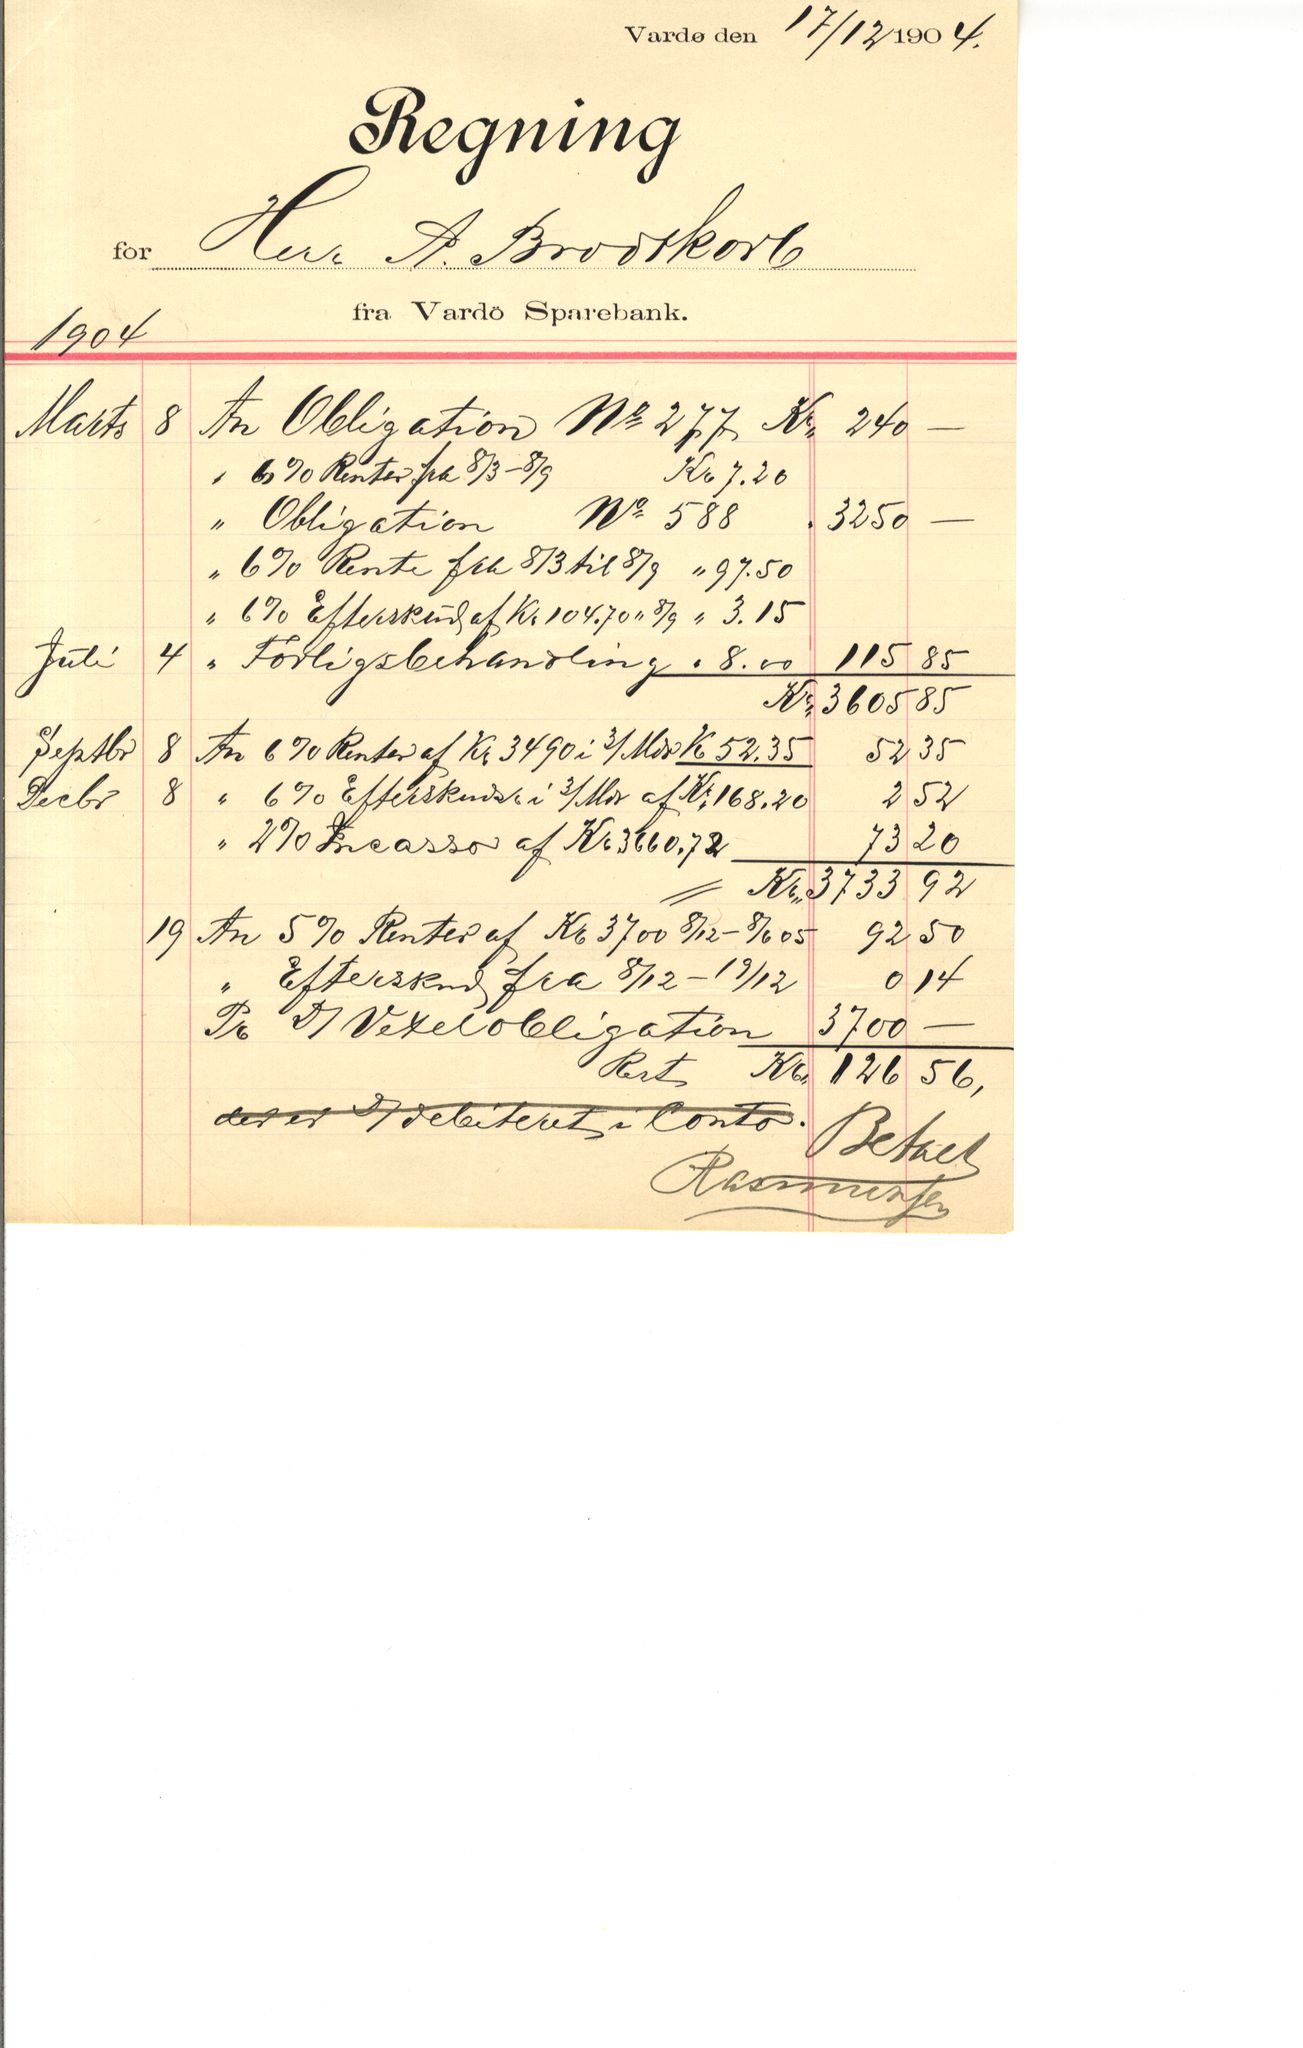 Vardø den 17/12 1904.
Regning
for Herr A. Brodtkorb
fra Vardö Sparebank.
1904
Marts 8 An Obligation No 277 Kr. 240 —
" 6% Renter fra 8/3 – 8/9 Kr 7.20
" Obligation No 588 . 3250 —
" 6% Rente fra 8/3 til 8/9 " 97.50
" 6% Efterskud af Kr 104.70 " 8/9 " 3.15
Juli 4 " Forligsbehandling " 8.00 115 85
Kr. 3605 85
Septbr 8 An 6% Renter af Kr 3490 i 3/Mdr K 52.35 52 35
Decbr 8 " 6% Efterskudsr i 3/Mdr af Kr. 168.20 2 52
" 2% Incasso af Kr 3660.72 73 20
// Kr. 3733 92
19 An 5% Renter af Kr 3700 8/12 – 8/6 05 92 50
" Efterskud fra 8/12 – 19/12 0 14
Pr D/ Vexelobligation 3700 —
Rest Kr. 126 56,
der er D/ debiteret i Conto.
Betalt
Rasmussen